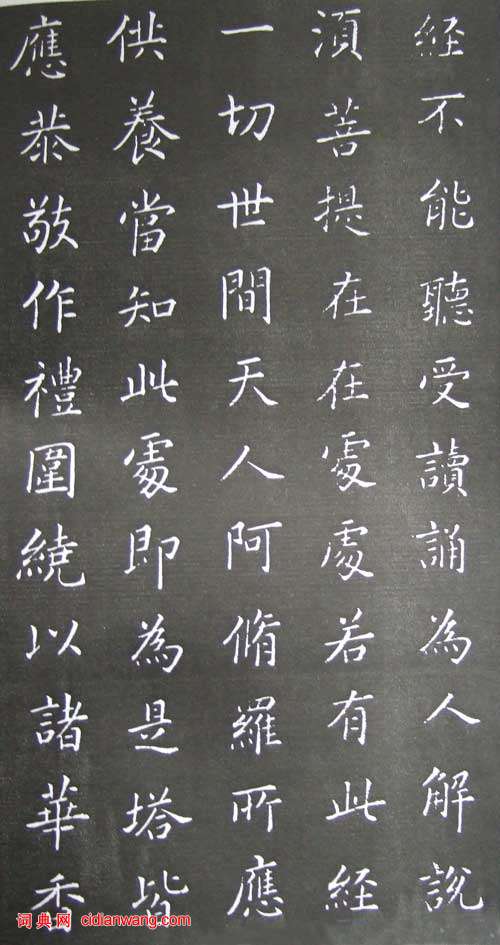 経不能聽受讀誦為人解說
湏菩提在在處處若有此経
一切世間天人阿脩羅所應
供養當知此處即為是塔皆
應恭敬作禮圍繞以諸華香
词典网 cidianwang.com